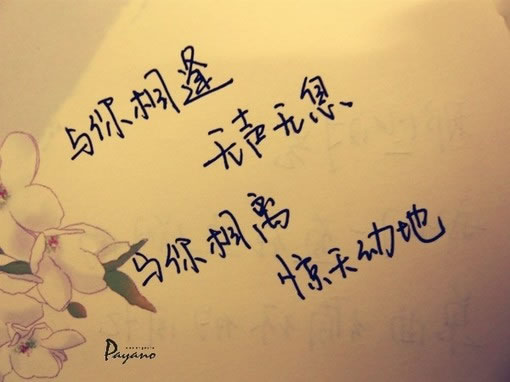 与你相逢
无声无息
与你相离
惊天动地
Payano